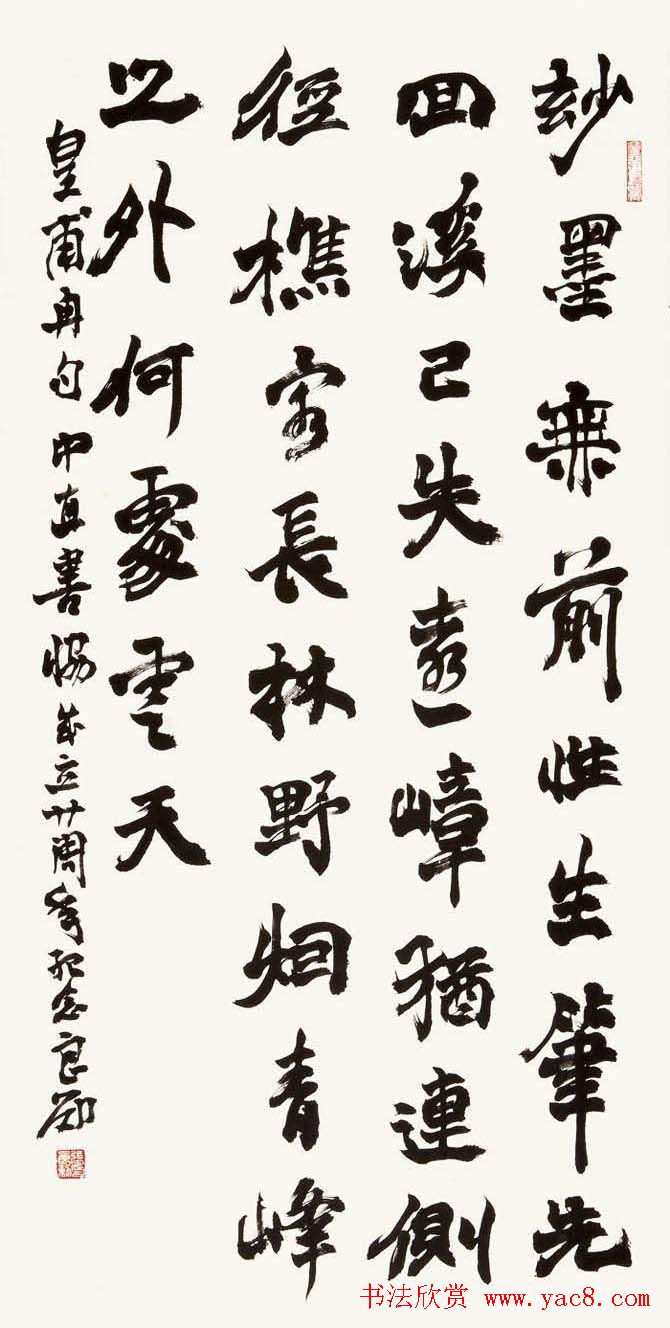 玅墨無前性生筆先
回溪已失遠嶂猶連側
徑樵客長林野烟青峰
之外何處雲天
皇甫冉句中直書協成立廿周年紀念良勛
书法欣赏 www.yac8.com